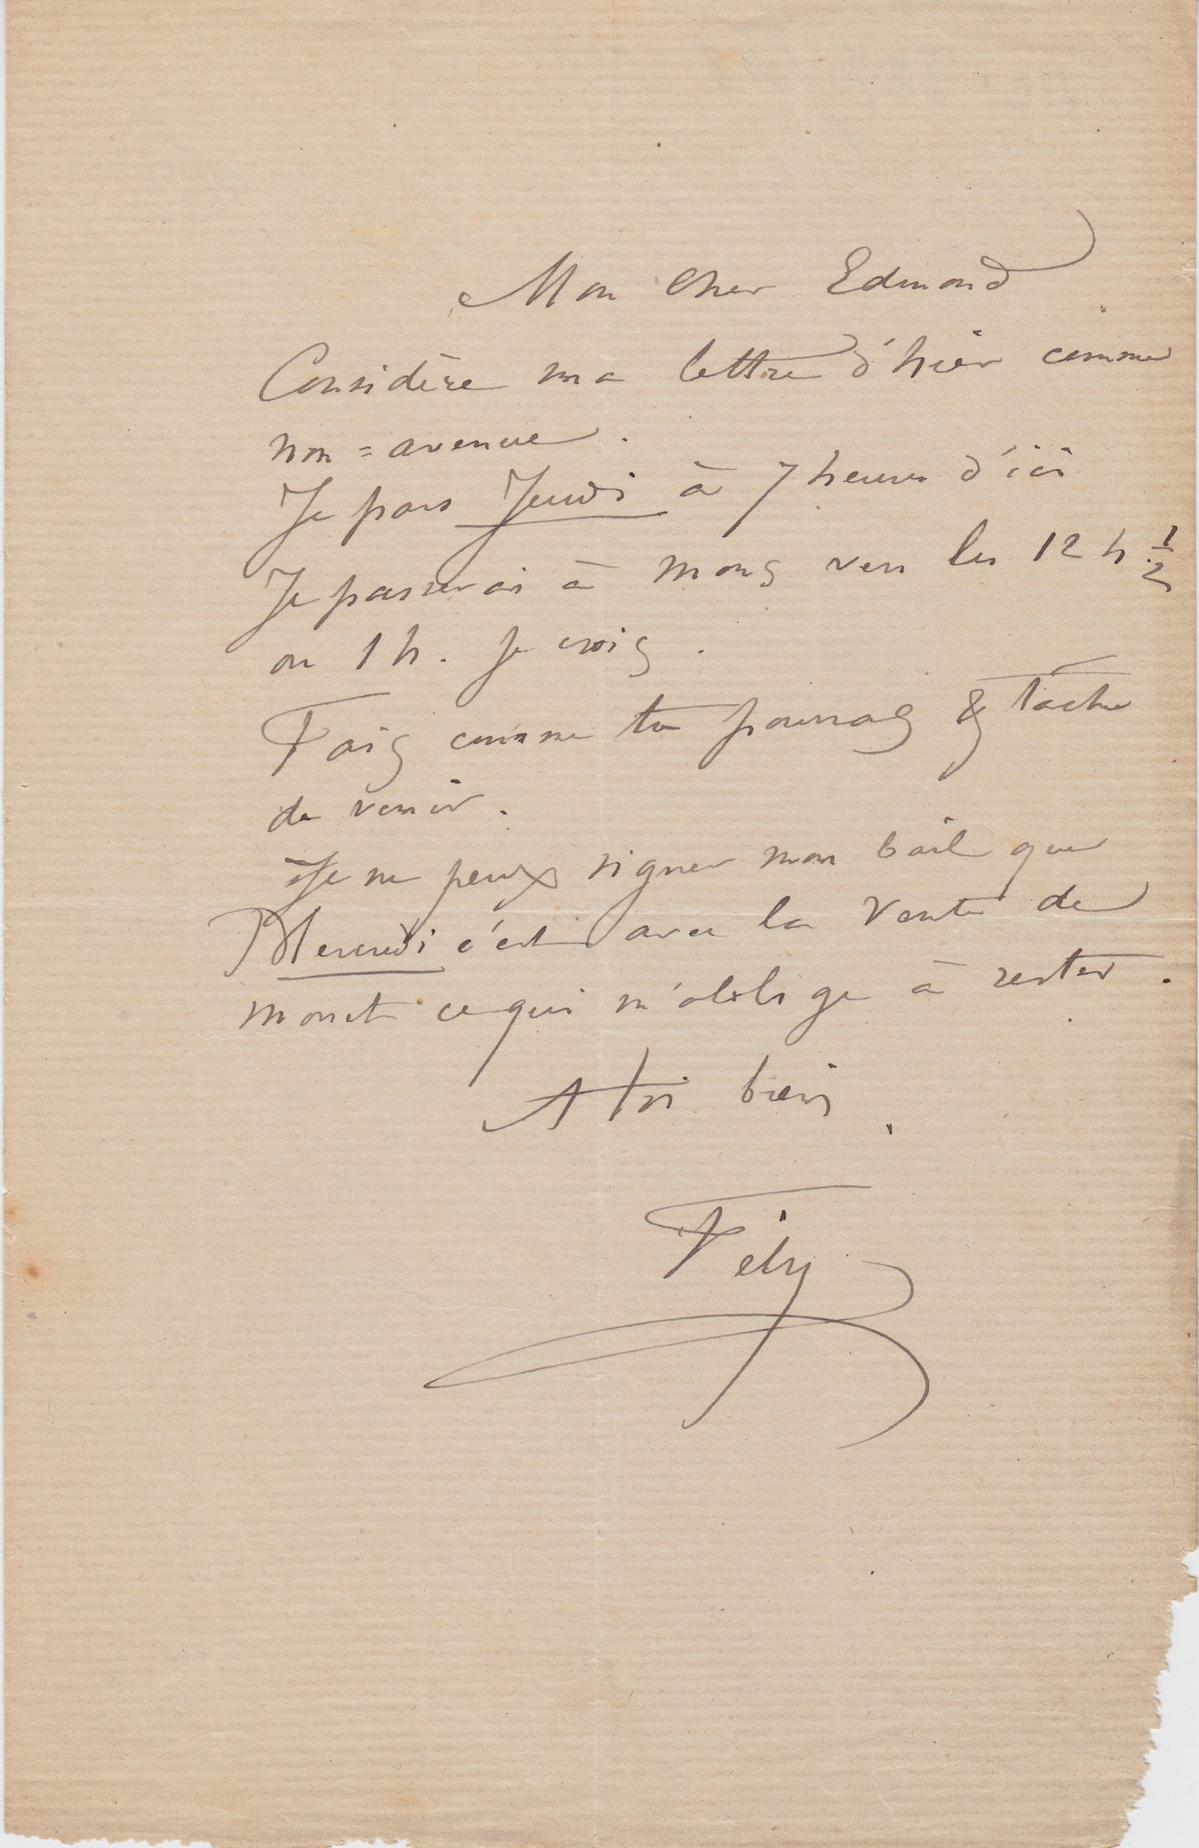 Mon cher Edmond
Considère ma lettre d'hier comme
non=avenue.
Je pars Jeudi à 7 heures d'ici
Je passerai à mons vers les 12 h 1/2
ou 1 h. je crois.
Fais comme tu pourras & tache
de venir.
Je ne peux signer mon bail que
Mercredi c'est avec la vente de
monet ce qui m'oblige à rester.
A toi bien
Fély